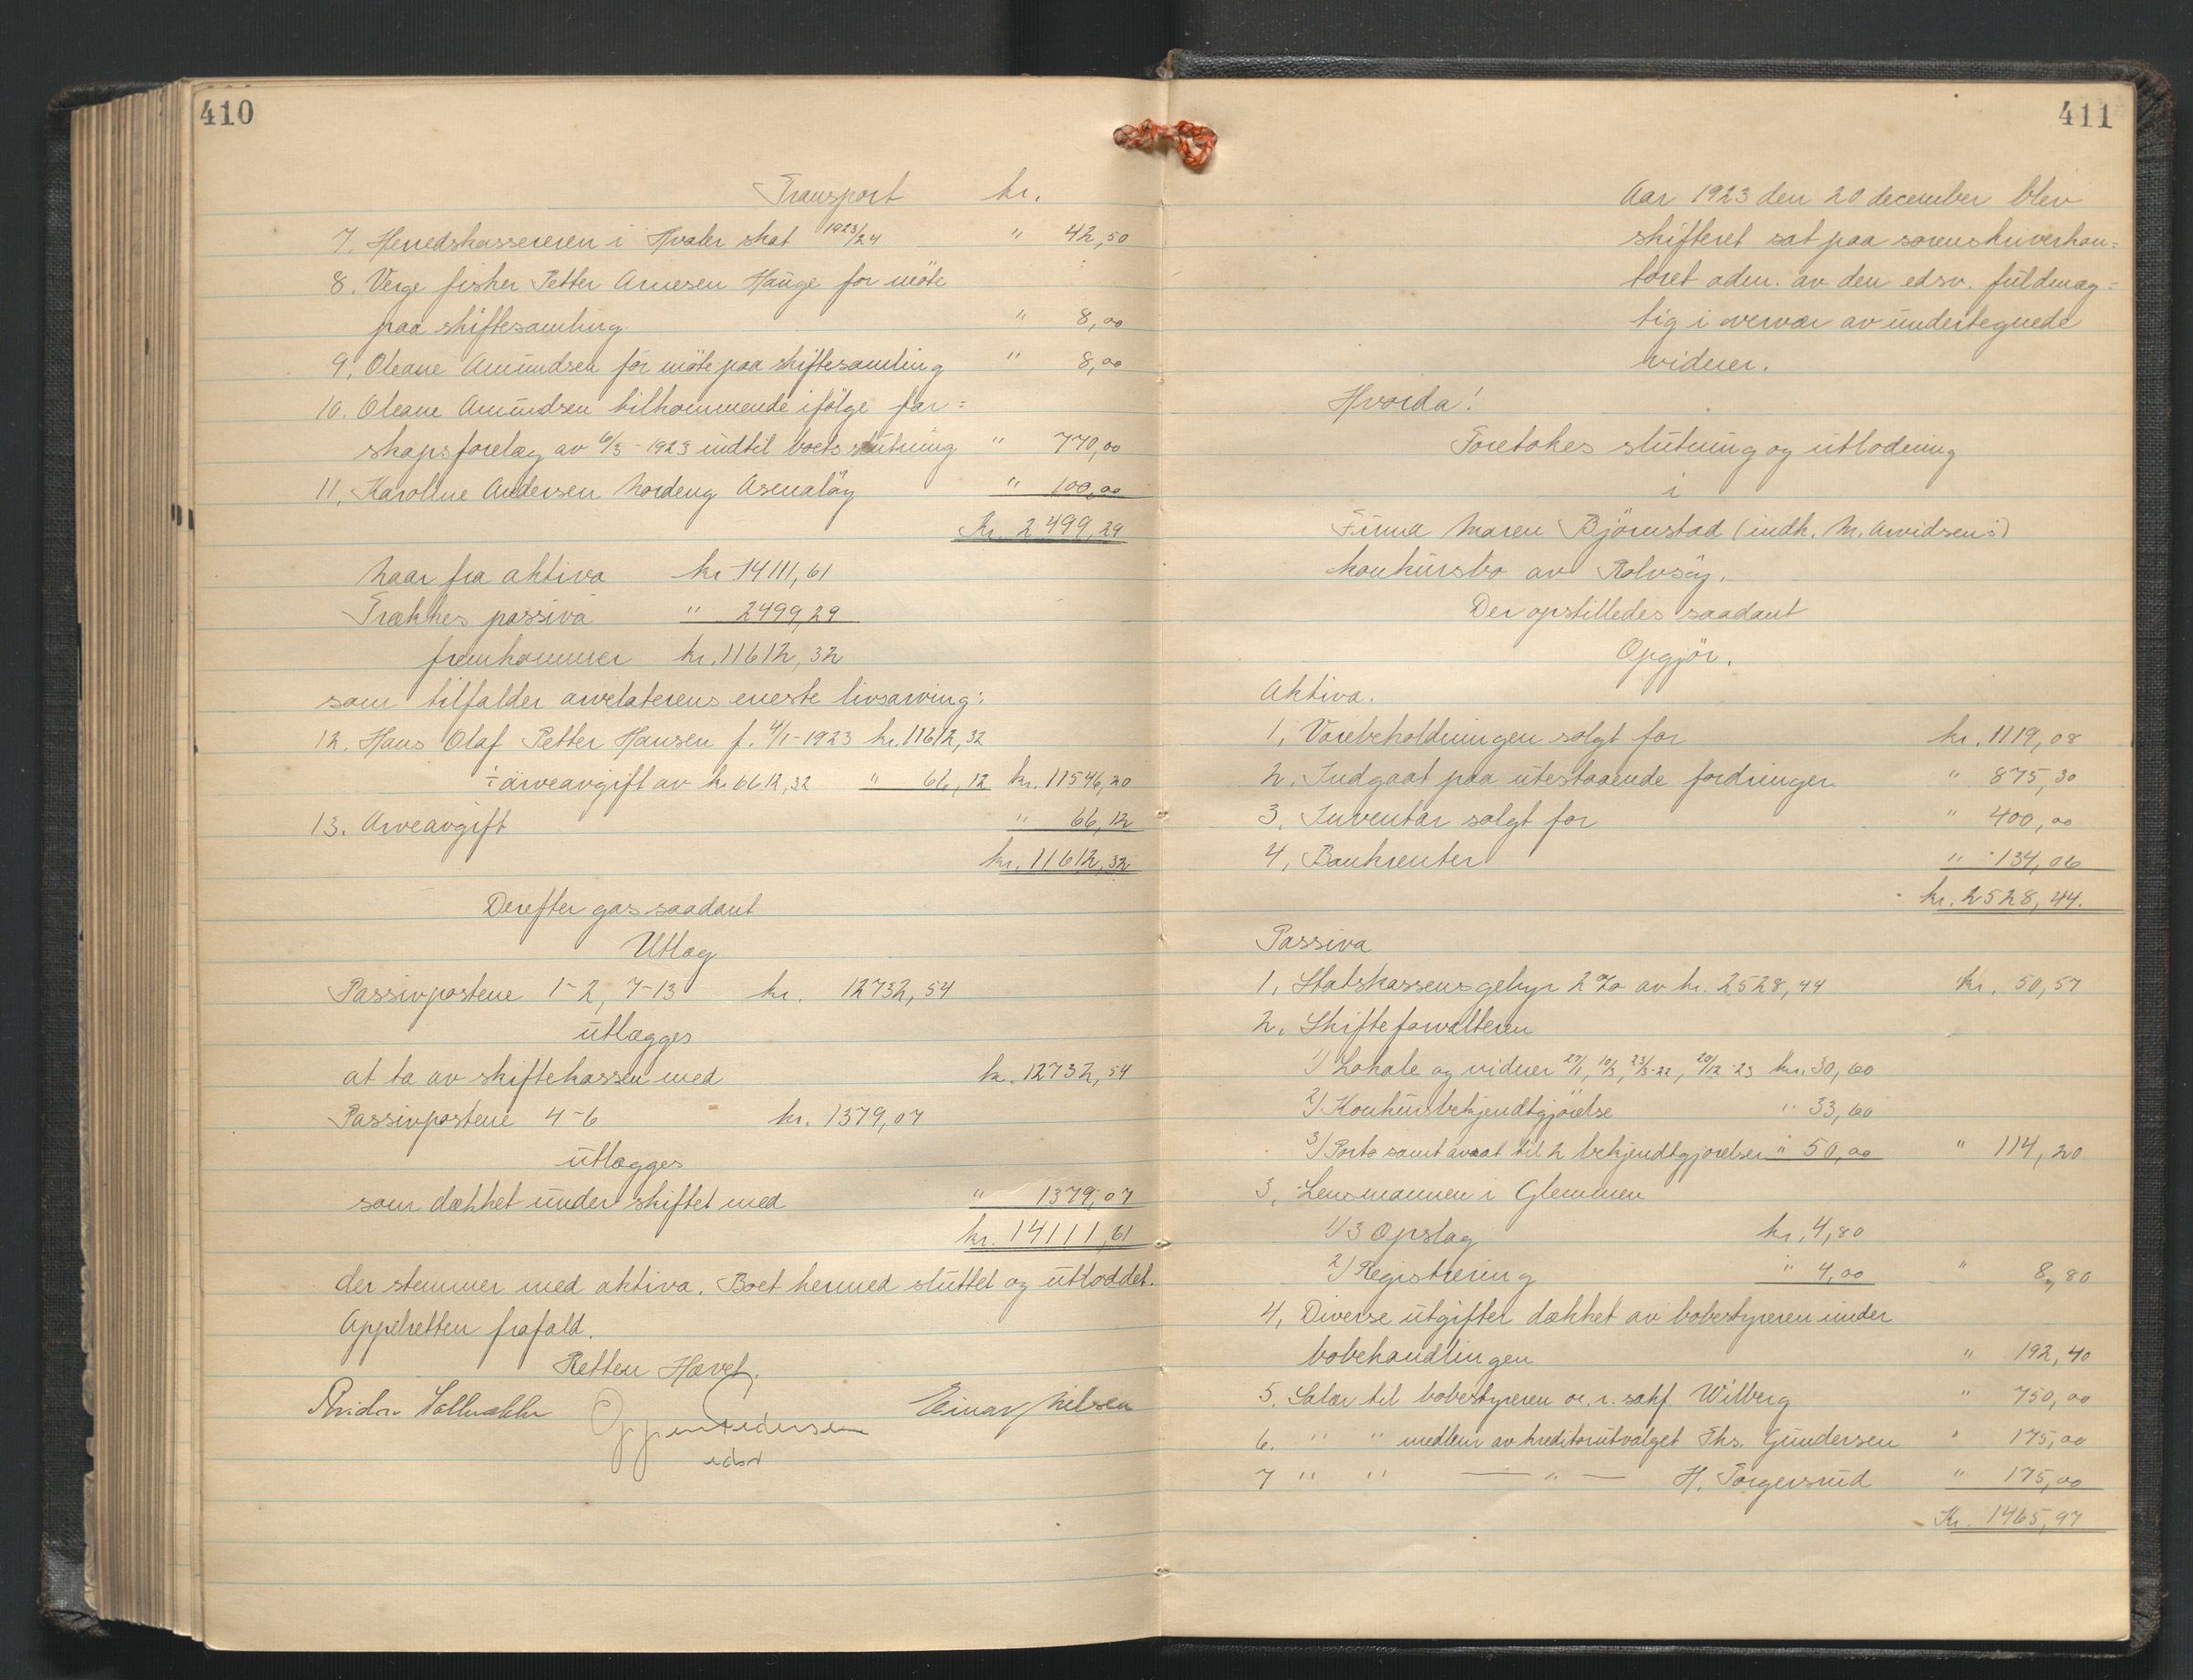 410
Transport kr.
7. Herredskassereren i Hvaler skat 1923/24 " 42,50
8. Verge fisker Petter Arnesen Hauge for möte
paa skiftesamling " 8,00
9. Oleane Amundsen for möte paa skiftesamling " 8,00
10. Oleane Amundsen tilkommende ifölge far=
skapsforelæg av 6/3-1923 indtil boets slutning " 770,00
11. Karoline Andersen Nordeng Asmalöy " 100,00
Kr. 2499,29
Naar fra aktiva kr 14111,61
Trækkes passiva " 2499,29
fremkommer kr. 11612,32
som tilfalder arvelaterens eneste livsarving:
12. Hans Olaf Petter Hansen f. 4/1-1923 kr. 11612,32
÷ arveavgift av kr 6612,32 " 66,12 kr. 11546,20
13. Arveavgift " 66,12
kr. 11612,32
Derefter gas saadant
Utlæg
Passivpostene 1-2, 7-13 kr. 12732,54
utlægges
at ta av skiftekassen med kr. 12732,54
Passivpostene 4-6 kr. 1379,07
utlægges
som dækket under skiftet med " 1379,07
kr. 14111,61
der stemmer med aktiva. Boet hermed sluttet og utloddet.
Appelretten frafald.
Retten Hævet.
Einar Nilsen
edsv
411
Aar 1923 den 20 december blev
skifteret sat paa sorenskriverkon=
toret adm. av den edsv. fuldmæg=
tig i overvær av undertegnede
vidner.
Hvorda!
Foretokes slutning og utlodning
i
Firma Maren Björnstad (indh. M. Arvidsens)
konkursbo av Rolvsöy.
Der opstilledes saadant
Opgjör.
Aktiva.
1, Varebeholdningen solgt for kr. 1119,08
2. Indgaat paa utestaaende fordringer " 875,30
3. Inventar solgt for " 400,00
4, Bankrenter " 134,06
kr. 2528,44.
Passiva
1, Statskassens gebyr 2 % av kr. 2528,44 kr. 50,57
2. Skifteforvalteren
1) Lokale og vidner 27/1, 10/3, 23/3-22, 20/12-23 kr. 30,60
2) Konkursbekjendtgjörelse " 33,60
3) Porto samt avsat til 2 bekjendtgjörelser " 50,00 " 114,20
3, Lensmannen i Glemmen
1) 3 Opslag kr. 4,80
2) Registrering " 4,00 " 8,80
4, Diverse utgifter dækket av bobestyreren under
bobehandlingen " 192,40
5. Salær til bobestyreren o.r.sakf. Wilberg " 750,00
6. " " medlem av kreditorutvalget Ths. Gundersen " 175,00
7 " " — " — H. Torgersrud " 175,00
Kr. 1465,97